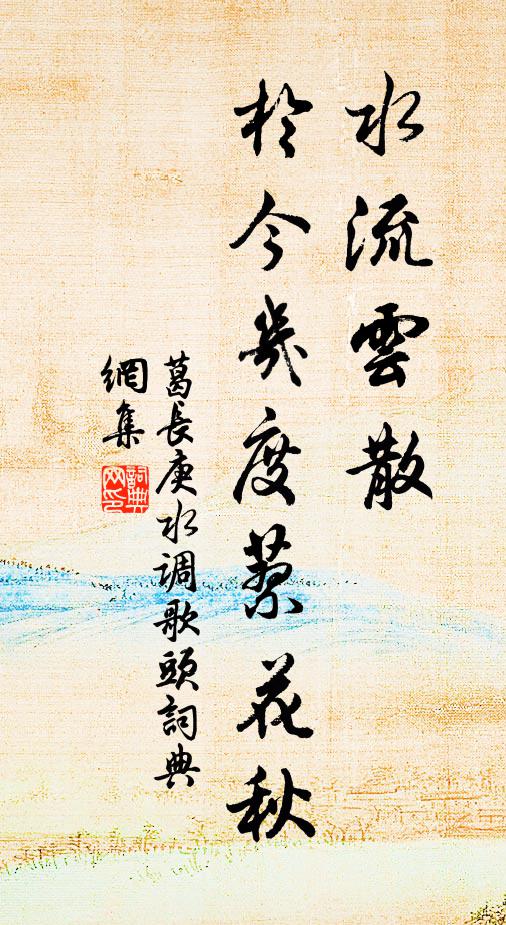 水流雲散
於今幾度蓼花秋
葛長庚水调歌頭詞典
網集
詞典
网印